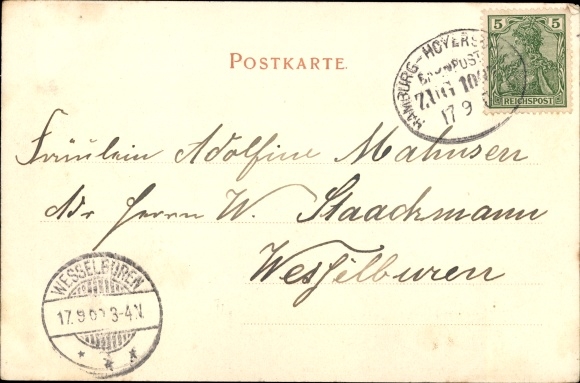 POSTKARTE.
HAMBURG-HOYERS
BAHNPOST
ZUG
17 9
5 5
REICHSPOST
Fräulein Adolfine Mahnsen
Adr Herrn W. Staackmann
Wesselburen
WESSELBUREN
17.9 3-4N.
* * *